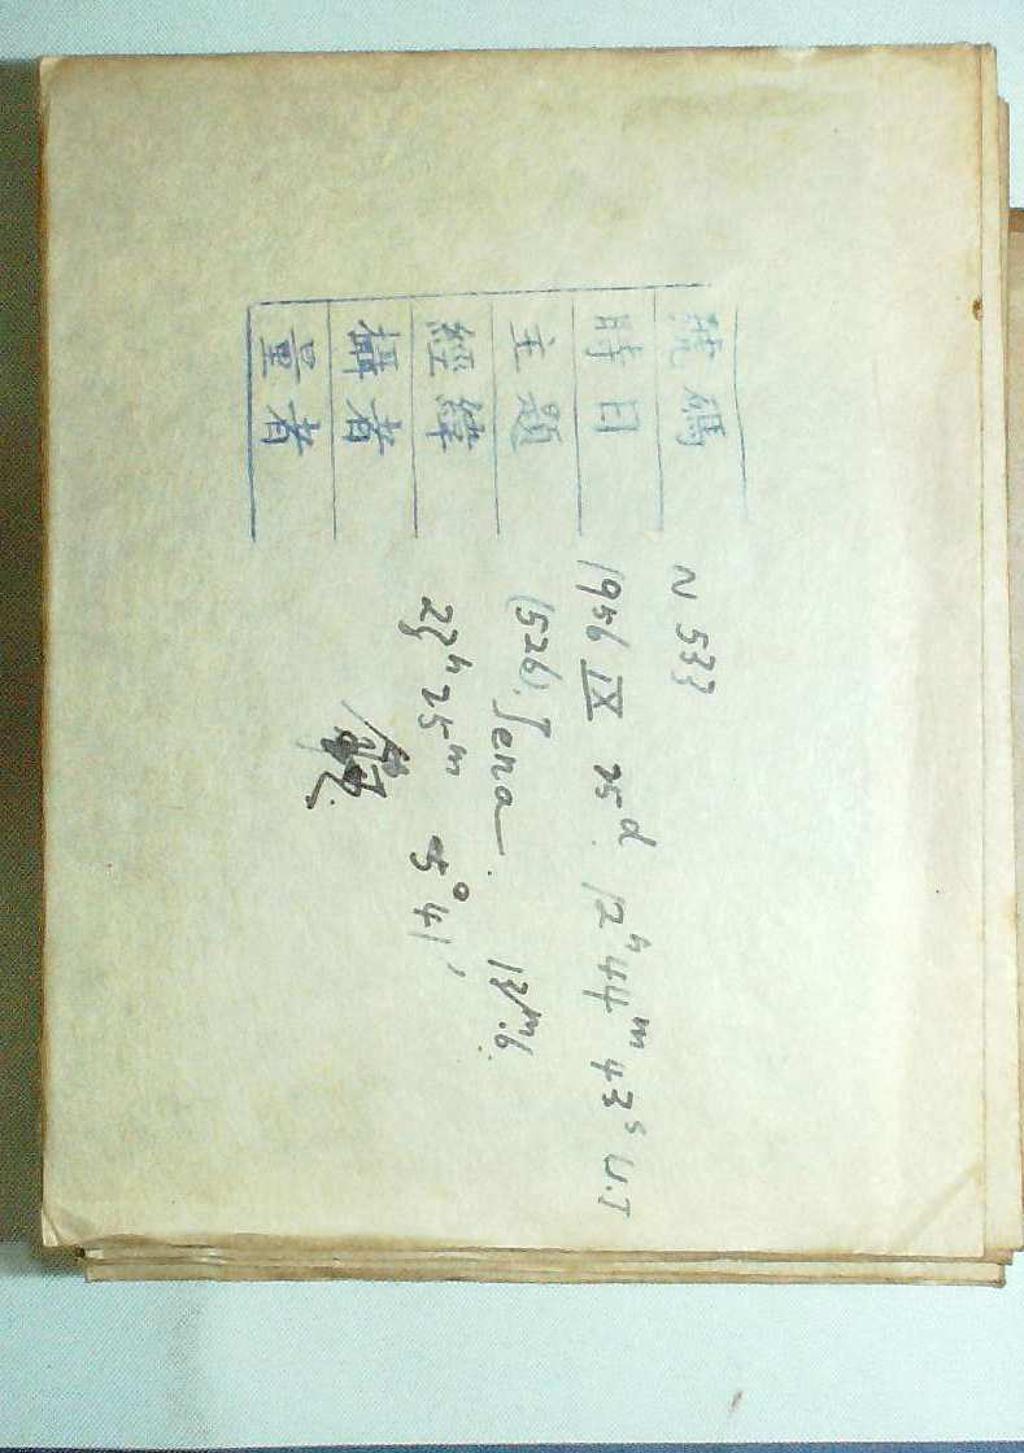 號碼 N 533
時日 1956 IX 25d 12h 44m 43s U.T
主題 (526) Jena 13m.6
經緯 23h 25m 5° 41'
攝者
量者